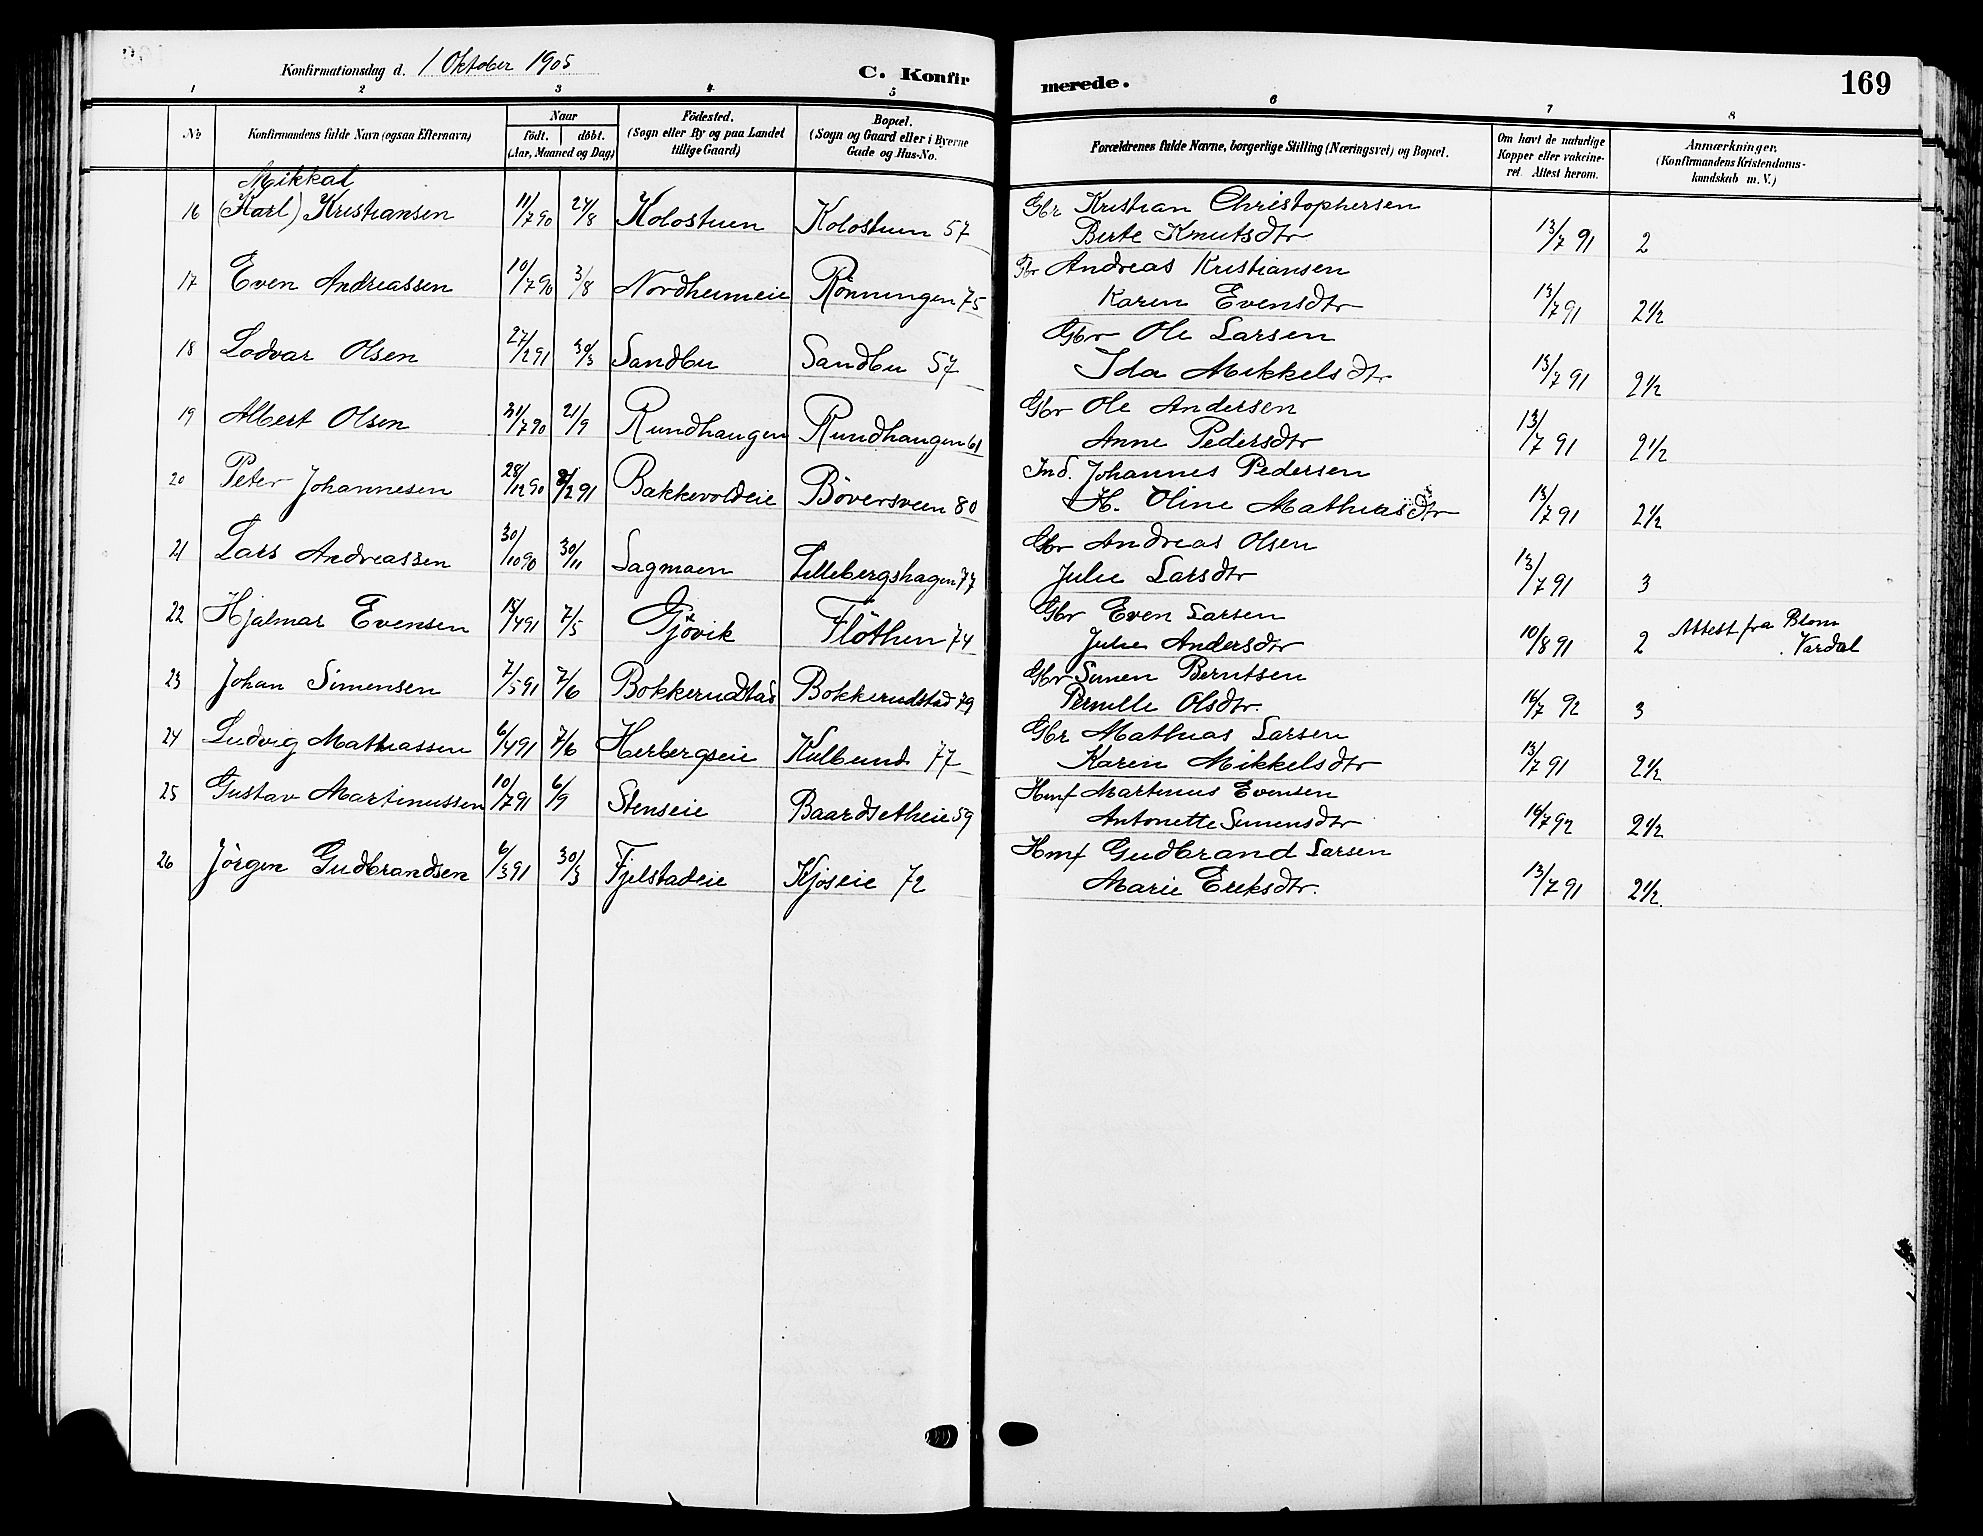 Konfirmationsdag d. 1 Oktober 1905
C. Konfirmerede.
169
1 2 3 4 5 6 7 8
No
Konfirmandens fulde Navn (ogsaa Efternavn)
Naar
födt. döbt.
(Aar, Maaned og Dag)
Födested.
(Sogn eller By og paa Landet
tillige Gaard)
Bopæl.
(Sogn og Gaard eller i Byerne
Gade og Hus-No.
Forældrenes fulde Navne, borgerlige Stilling (Næringsvei) og Bopæl.
Om havt de naturlige
Kopper eller vakcine-
ret. Attest herom.
Anmærkninger.
(Konfirmandens Kristendoms-
kundskab m. V.)
Mikkal
16 (Karl) Kristiansen 11/7 90 24/8 Kolostuen Kolostuen 57 Gbr Kristian Christophersen
Berte Knutsdtr 13/7 91 2
17 Even Andreassen 10/7 90 3/8 Nordheimeie Rönningen 75 Gbr Andreas Kristiansen
Karen Evensdtr 13/7 91 2 1/2
18 Lodvar Olsen 27/2 91 30/3 Sandbu Sandbu 57 Gbr Ole Larsen
Ida Mikkelsdtr 13/7 91 2 1/2
19 Albert Olsen 31/7 90 21/9 Rundhaugen Rundhaugen 61 Gbr Ole Andersen
Anne Pedersdtr 13/7 91 2 1/2
20 Peter Johannesen 28/12 90 /2 91 Bakkevoldeie Böversveen 80 Ind. Johannes Pedersen
K. Oline Mathiasdtr 13/7 91 2 1/2
21 Lars Andreassen 30/10 90 30/11 Sagmoen Lillebergshagen 77 Gbr Andreas Olsen
Julie Larsdtr 13/7 91 3
22 Hjalmar Evensen 15/4 91 7/5 Gjövik Flöthen 74 Gbr Even Larsen
Julie Andersdtr 10/8 91 2 Attest fra Blom
Vardal
23 Johan Simensen 7/5 91 7/6 Bokkerudstad Bokkerudstad 79 Gbr Simen Berntsen
Pernille Olsdtr. 16/7 92 3
24 Ludvig Mathiassen 6/4 91 7/6 Herbergseie Kulbund 77 Gbr Mathias Larsen
Karen Mikkelsdtr 13/7 91 2 1/2
25 Gustav Martinussen 10/7 91 6/9 Stenseie Baardsetheie 59 Hmf Martinus Evensen
Antonette Simensdtr 16/7 92 2 1/2
26 Jörgen Gudbrandsen 6/3 91 30/3 Fjelstadeie Kjöseie 72 Hmf Gudbrand Larsen
Marie Eriksdtr. 13/7 91 2 1/2.